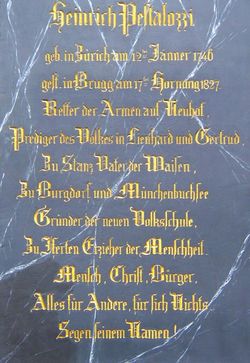 Heinrich Pestalozzi
geb. in Zürich am 12ten Jänner 1746
gest. in Brugg am 17ten Hornung 1827.
Retter der Armen auf Neuhof,
Prediger des Volkes in Lienhard und Gertrud,
Zu Stanz Vater der Waisen,
Zu Burgdorf und Münchenbuchsee
Gründer der neuen Volksschule,
Zu Iferten Erzieher der Menschheit.
Mensch, Christ, Bürger,
Alles für Andere, für sich Nichts.
Segen seinem Namen!